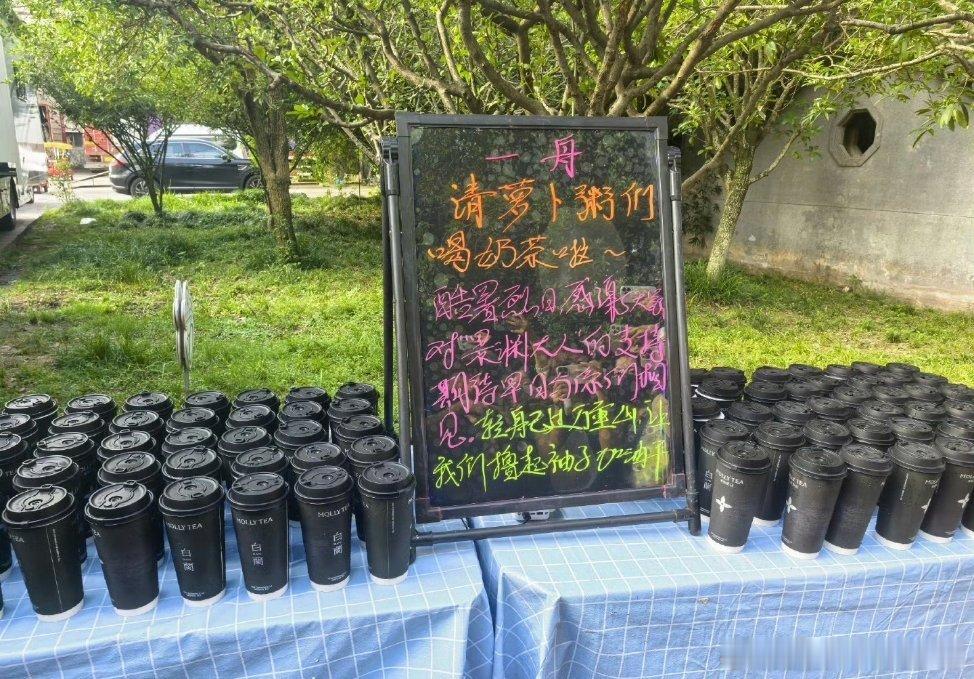 一舟
请萝卜粥们
喝奶茶啦~
酷署烈日,感谢大家
对景渊大人的支持
期待早日与你们相
见。轻舟已过万重山,让
我们撸起袖子加油干
MOLLY TEA
白蘭
MOLLY TEA
白蘭
MOLLY TEA
白蘭
MOLLY TEA
白
MOLLY TEA